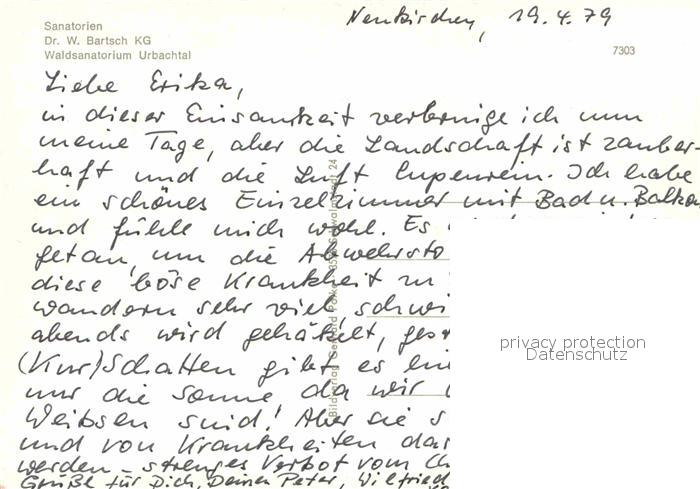 Sanatorien
Dr. W. Bartsch KG
Waldsanatorium Urbachtal
Neukirchen, 19.4.79
7303
Liebe Erika,
in dieser Einsamkeit verbringe ich nun
meine Tage, aber die Landschaft ist zauber-
haft und die Luft lupenrein. Ich habe
ein schönes Einzelzimmer mit Bad u. Balko
und fühle mich wohl. Es
getan, um die Abwehrsto
diese böse Krankheit zu
wandern sehr viel, schwi
abends wird gehäkelt, ges
(Kur)Schatten gibt es
nur die Sonne, da wir
Weibsen sind! Aber sie s
und von Krankheiten das
werden – strenges Verbot vom Ch
Grüße für Dich, Deinen Peter, Wilfried
Bildverlag
privacy protection
Datenschutz